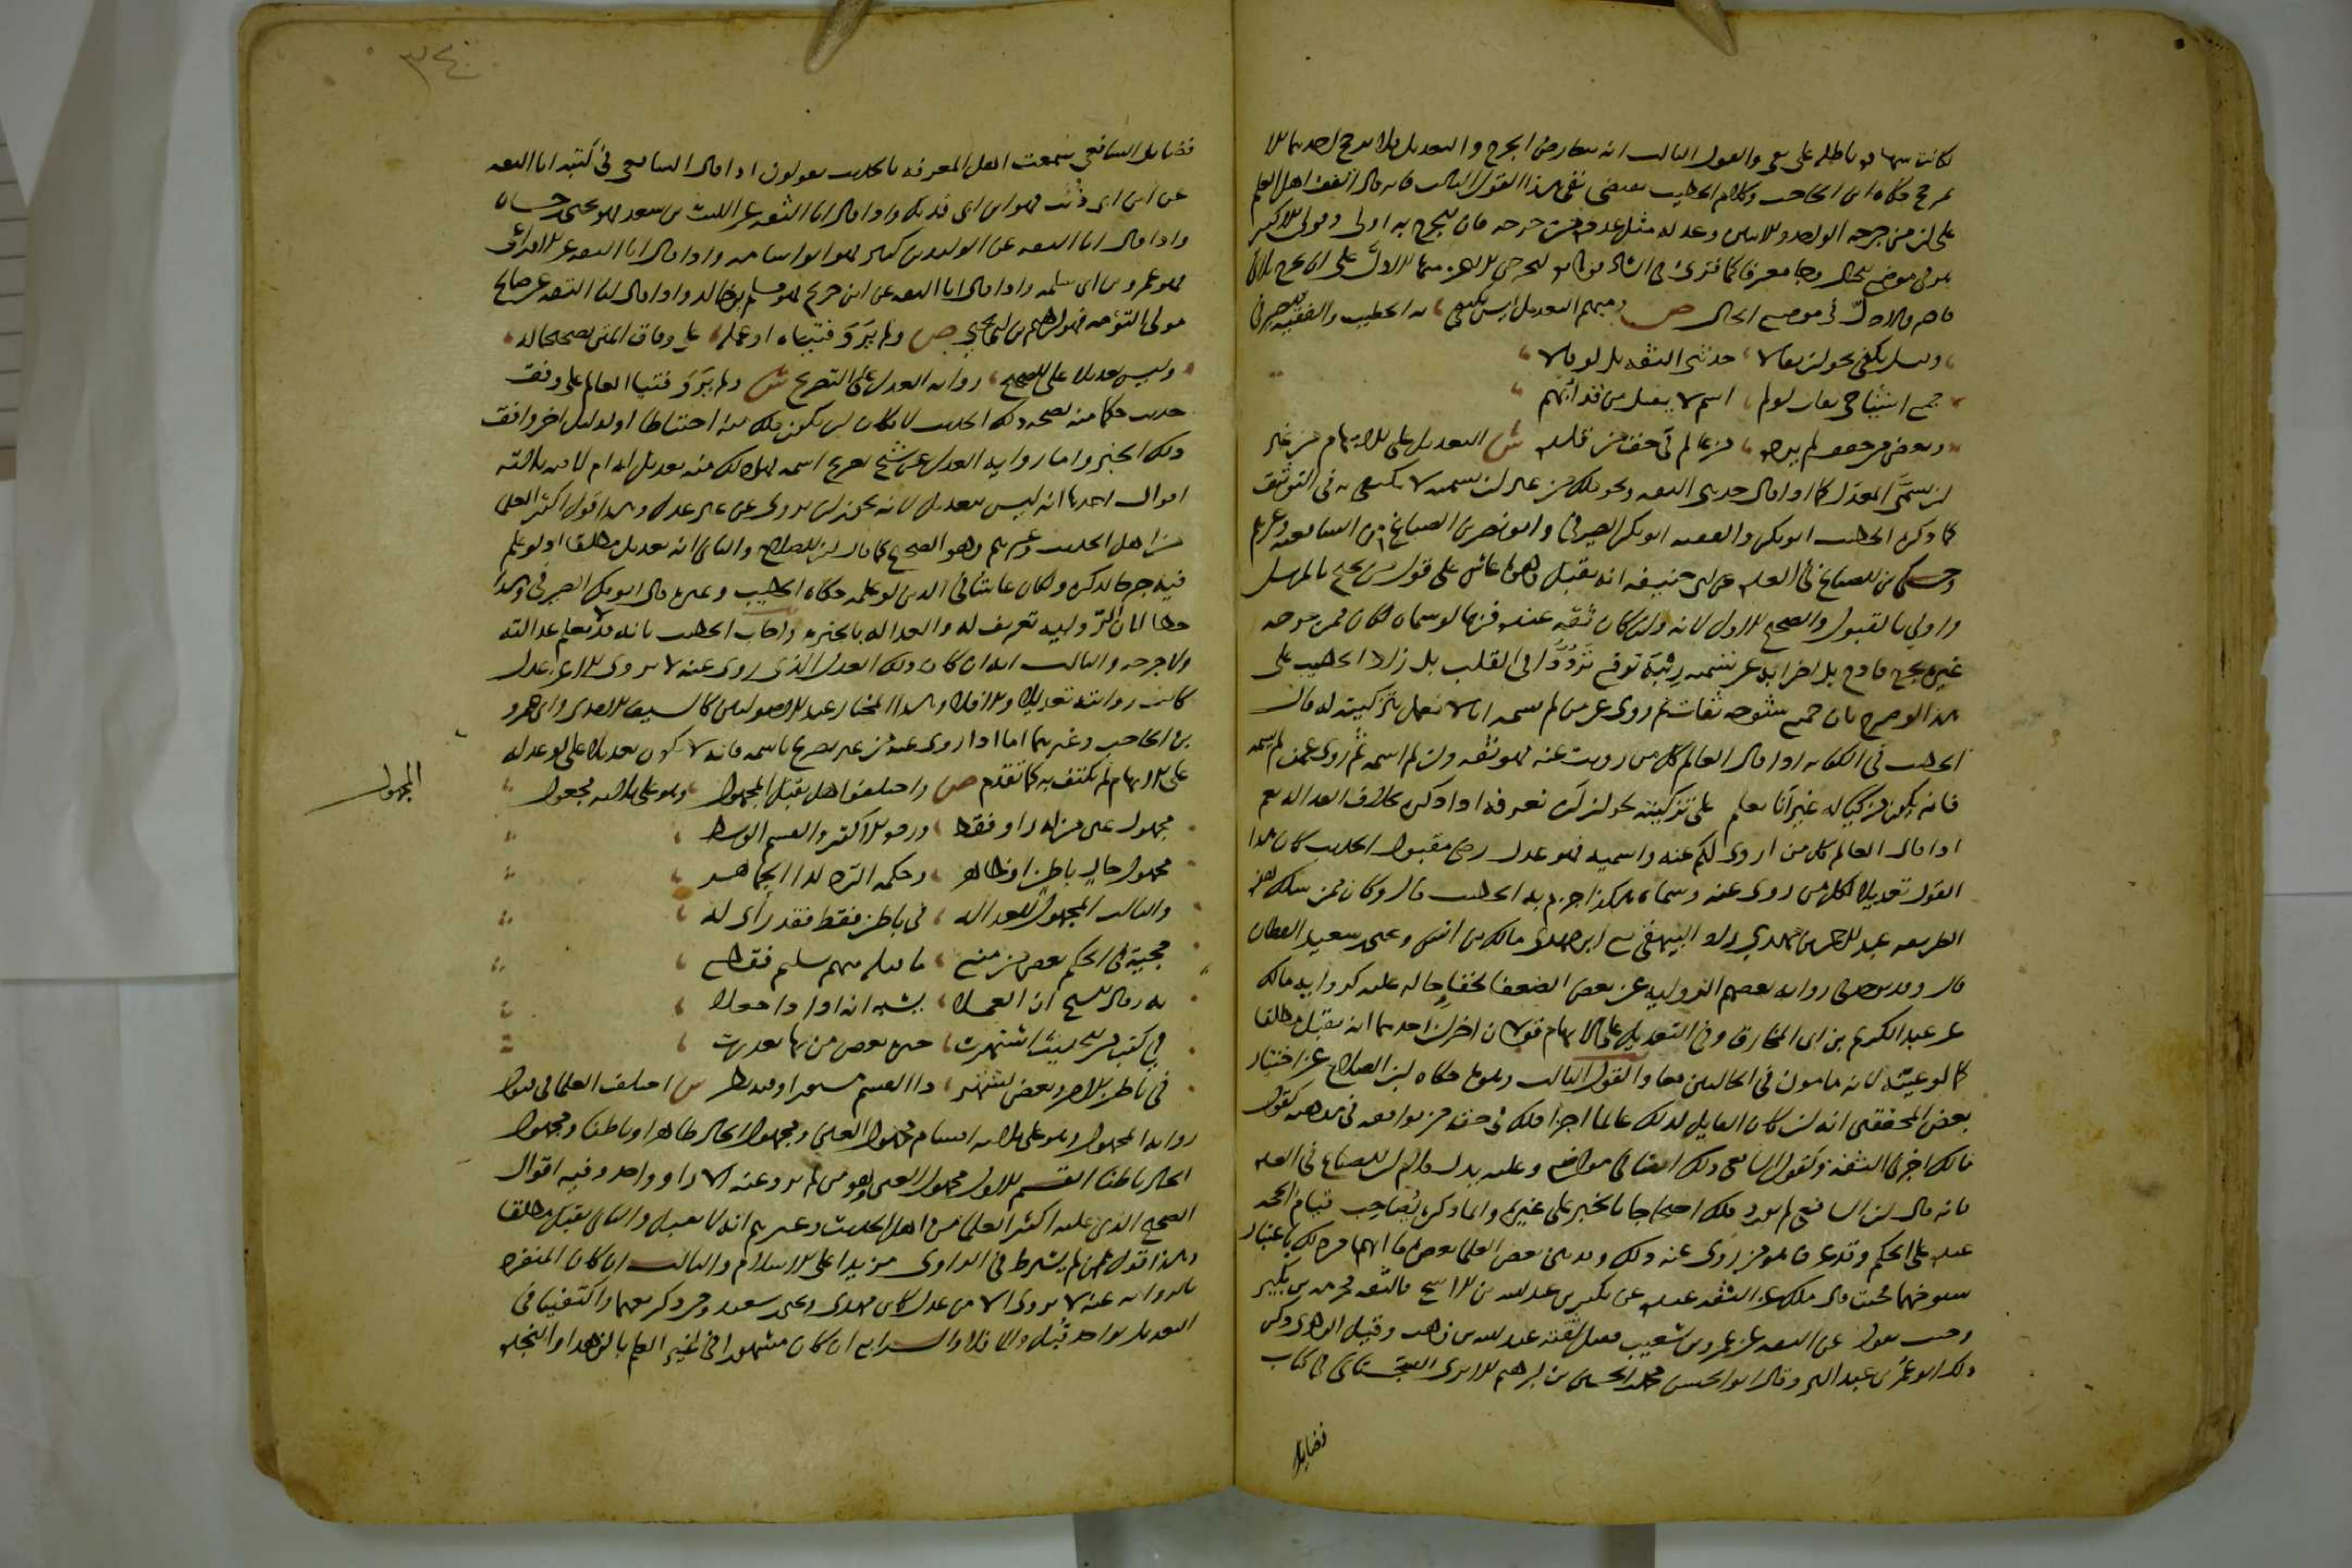 على من جرحه الواحد والاثنان وعدله مثل عدد من جرحه فان الجرح به اولى
ص ومبهم التعديل ليس يكتفي به الخطيب والفقيه الصيرفي
وقيل يكفي نحو ان يقالا حدثني الثقة بل لو قالا
جميع اشياخي ثقات لو لم اسم لا يقبل من قد ابهم
وبعض من حقق لم يرده من عالم في حق من قلده ش التعديل على الابهام من غير
ان يسمى المعدل كما اذا قال حدثني الثقة ونحو ذلك من غير ان يسميه لا يكتفى به في التوثيق
كما ذكره الخطيب ابو بكر والفقيه ابو بكر الصيرفي وابو نصر بن الصباغ من الشافعية وغيرهم
وحكى ابن الصباغ في العدة عن ابي حنيفة انه يقبل وهو ماش على قول من يحتج بالمرسل
واولى بالقبول والصحيح الاول لانه وان كان ثقة عنده فربما لو سماه لكان ممن جرحه
غيره بجرح قادح بل اضرابه عن تسميته ريبة توقع ترددا في القلب بل زاد الخطيب على
هذا لو صرح بان جميع شيوخه ثقات ثم روى عن من لم يسمه انا لا نعمل بتزكيته له قال
الخطيب في الكفاية اذا قال العالم كل من رويت عنه فهو ثقة وان لم اسمه ثم روى عمن لم يسمه
فانه يكون مزكيا له غير انا لا نعمل على تزكيته لجواز ان نعرفه اذا ذكره بخلاف العدالة نعم
اذا قال العالم كل من اروي لكم عنه واسميه فهو عدل رضى مقبول الحديث كان هذا
القول تعديلا لكل من روى عنه وسماه هكذا جزم به الخطيب قال وكان ممن سلك هذه
الطريقة عبد الرحمن بن مهدي زاد البيهقي مع ابن مهدي مالك بن انس ويحيى بن سعيد القطان
قال وقد يوجد في رواية بعضهم الرواية عن بعض الضعفا لخفا حاله عليه كرواية مالك
عن عبد الكريم بن ابي المخارق وفي التعديل على الابهام قولان اخران احدهما انه يقبل مطلقا
كما لو عينه لانه مامون في الحالين معا والقول الثالث وهو ما حكاه ابن الصلاح عن اختيار
بعض المحققين انه ان كان القايل لذلك عالما اجزا ذلك في حق من يوافقه في مذهبه كقول
مالك اخبرني الثقة وكقول الشافعي ذلك ايضا في مواضع وعليه يدل كلام ابن الصباغ في العدة
فانه قال ان الشافعي لم يورد ذلك احتجاجا بالخبر على غيره وانما ذكره لاصحابه قيام الحجة
عنده على الحكم وقد عرف هو من روى عنه ذلك وقد بين بعض العلما بعض ما ابهماه من ذلك باعتبار
شيوخهما فحيث قال مالك عن الثقة عنده عن بكير بن عبد الله بن الاشج فالثقة مخرمة بن بكير
وحيث يقول عن الثقة عن عمرو بن شعيب فقيل الثقة عبد الله بن وهب وقيل الزهري ذكر
ذلك ابو عمر بن عبد البر وقال ابو الحسن محمد بن الحسين بن ابراهيم الابري السجستاني في كتاب
فضايل
٣٤٠
فضايل الشافعي سمعت اهل المعرفة بالحديث يقولون اذا قال الشافعي في كتبه انا الثقة
عن ابن ابي ذئب فهو ابن ابي فديك واذا قال انا الثقة عن الليث بن سعد فهو يحيى بن حسان
واذا قال انا الثقة عن الوليد بن كثير فهو ابو اسامة واذا قال انا الثقة عن الاوزاعي
فهو عمرو بن ابي سلمة واذا قال انا الثقة عن ابن جريج فهو مسلم بن خالد واذا قال انا الثقة عن صالح
مولى التؤمة فهو ابراهيم بن ابي يحيى ص ولم يروا فتياه او عمله على وفاق المتن تصحيحا له
وليس تعديلا على الصحيح رواية العدل على التصريح ش ولم يروا فتيا العالم على وفق
حديث حكما منه بصحة ذلك الحديث لامكان ان يكون ذلك منه احتياطا او لدليل اخر وافق
ذلك الخبر واما رواية العدل عن شيخ بصريح اسمه فهل ذلك منه تعديل له ام لا فيه ثلاثة
اقوال احدها انه ليس بتعديل لانه يجوز ان يروي عن غير عدل وهذا قول اكثر العلما
من اهل الحديث وغيرهم وهو الصحيح كما قال ابن الصلاح والثاني انه تعديل مطلقا اذ لو علم
فيه جرحا لذكره ولكان غاشا في الدين لو علمه حكاه الخطيب وغيره قال ابو بكر الصيرفي وهذا
خطا لان الرواية تعريف له والعدالة بالخبرة واجاب الخطيب بانه قد لا يعلم عدالته
ولا جرحه والثالث انه ان كان ذلك العدل الذي روى عنه لا يروي الا عن عدل
كانت روايته تعديلا والا فلا وهذا المختار عند الاصوليين كالسيف الامدي وابي عمرو
بن الحاجب وغيرهما اما اذا روى عنه من غير تصريح باسمه فانه لا يكون تعديلا بل ولو عدله
على الابهام لم يكتف به كما تقدم ص واختلفوا هل يقبل المجهول وهو على ثلاثة مجعول
المجهول
مجهول عين من له راو فقط ورده الاكثر والقسم الوسط
مجهول حال باطن وظاهر وحكمه الرد لدا الجماهر
والثالث المجهول للعدالة في باطن فقط فقد رأى له
حجية في الحكم بعض من منع ما قبله منهم سليم فقطع
به وقال الشيخ ان العملا يشبه انه على ذا جعلا
في كتب من الحديث اشتهرت خبرة بعض من بها تعذرت
في باطن الامر وبعض يشهر ذا القسم مستورا وفيه نظر ش اختلف العلما في قبول
رواية المجهول وهو على ثلاثة اقسام مجهول العين ومجهول الحال ظاهرا وباطنا ومجهول
الحال باطنا القسم الاول مجهول العين وهو من لم يرو عنه الا راو واحد وفيه اقوال
الصحيح الذي عليه اكثر العلما من اهل الحديث وغيرهم انه لا يقبل والثاني يقبل مطلقا
وهذا قول من لم يشترط في الراوي مزيدا على الاسلام والثالث ان كان المنفرد
بالرواية عنه لا يروي الا عن عدل كابن مهدي ويحيى بن سعيد ومن ذكر معهما واكتفينا في
التعديل بواحد قبل والا فلا والرابع ان كان مشهورا في غير العلم بالزهد او النجدة